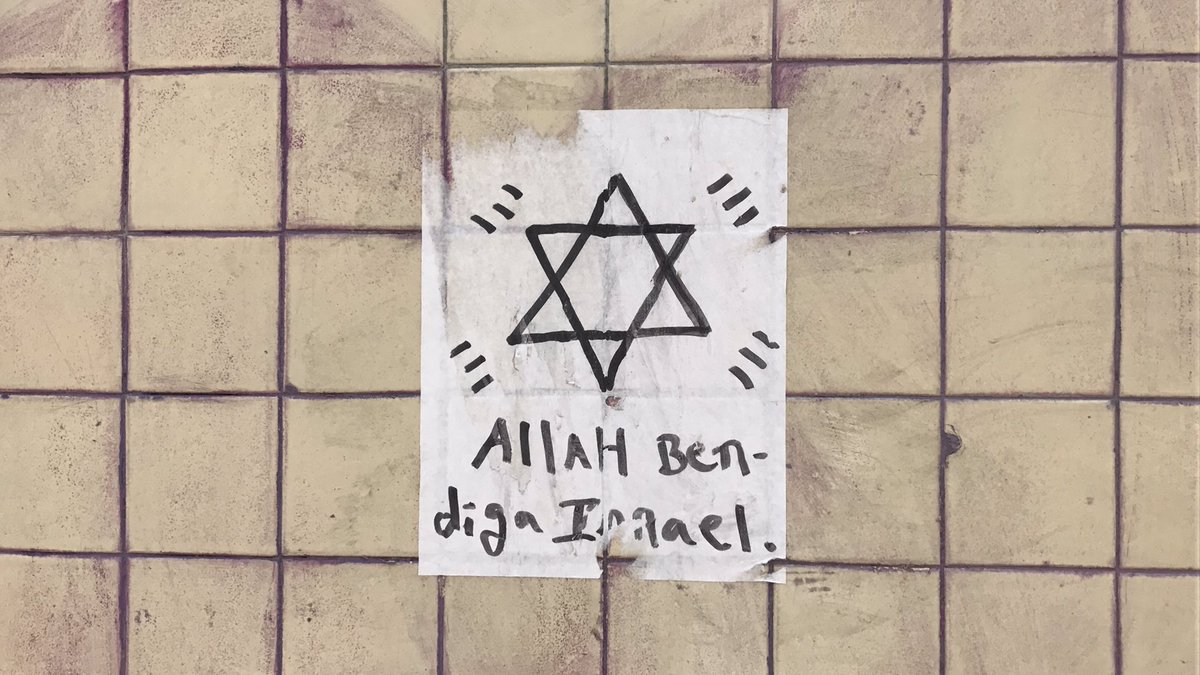 AllAH Ben-
diga Israel.